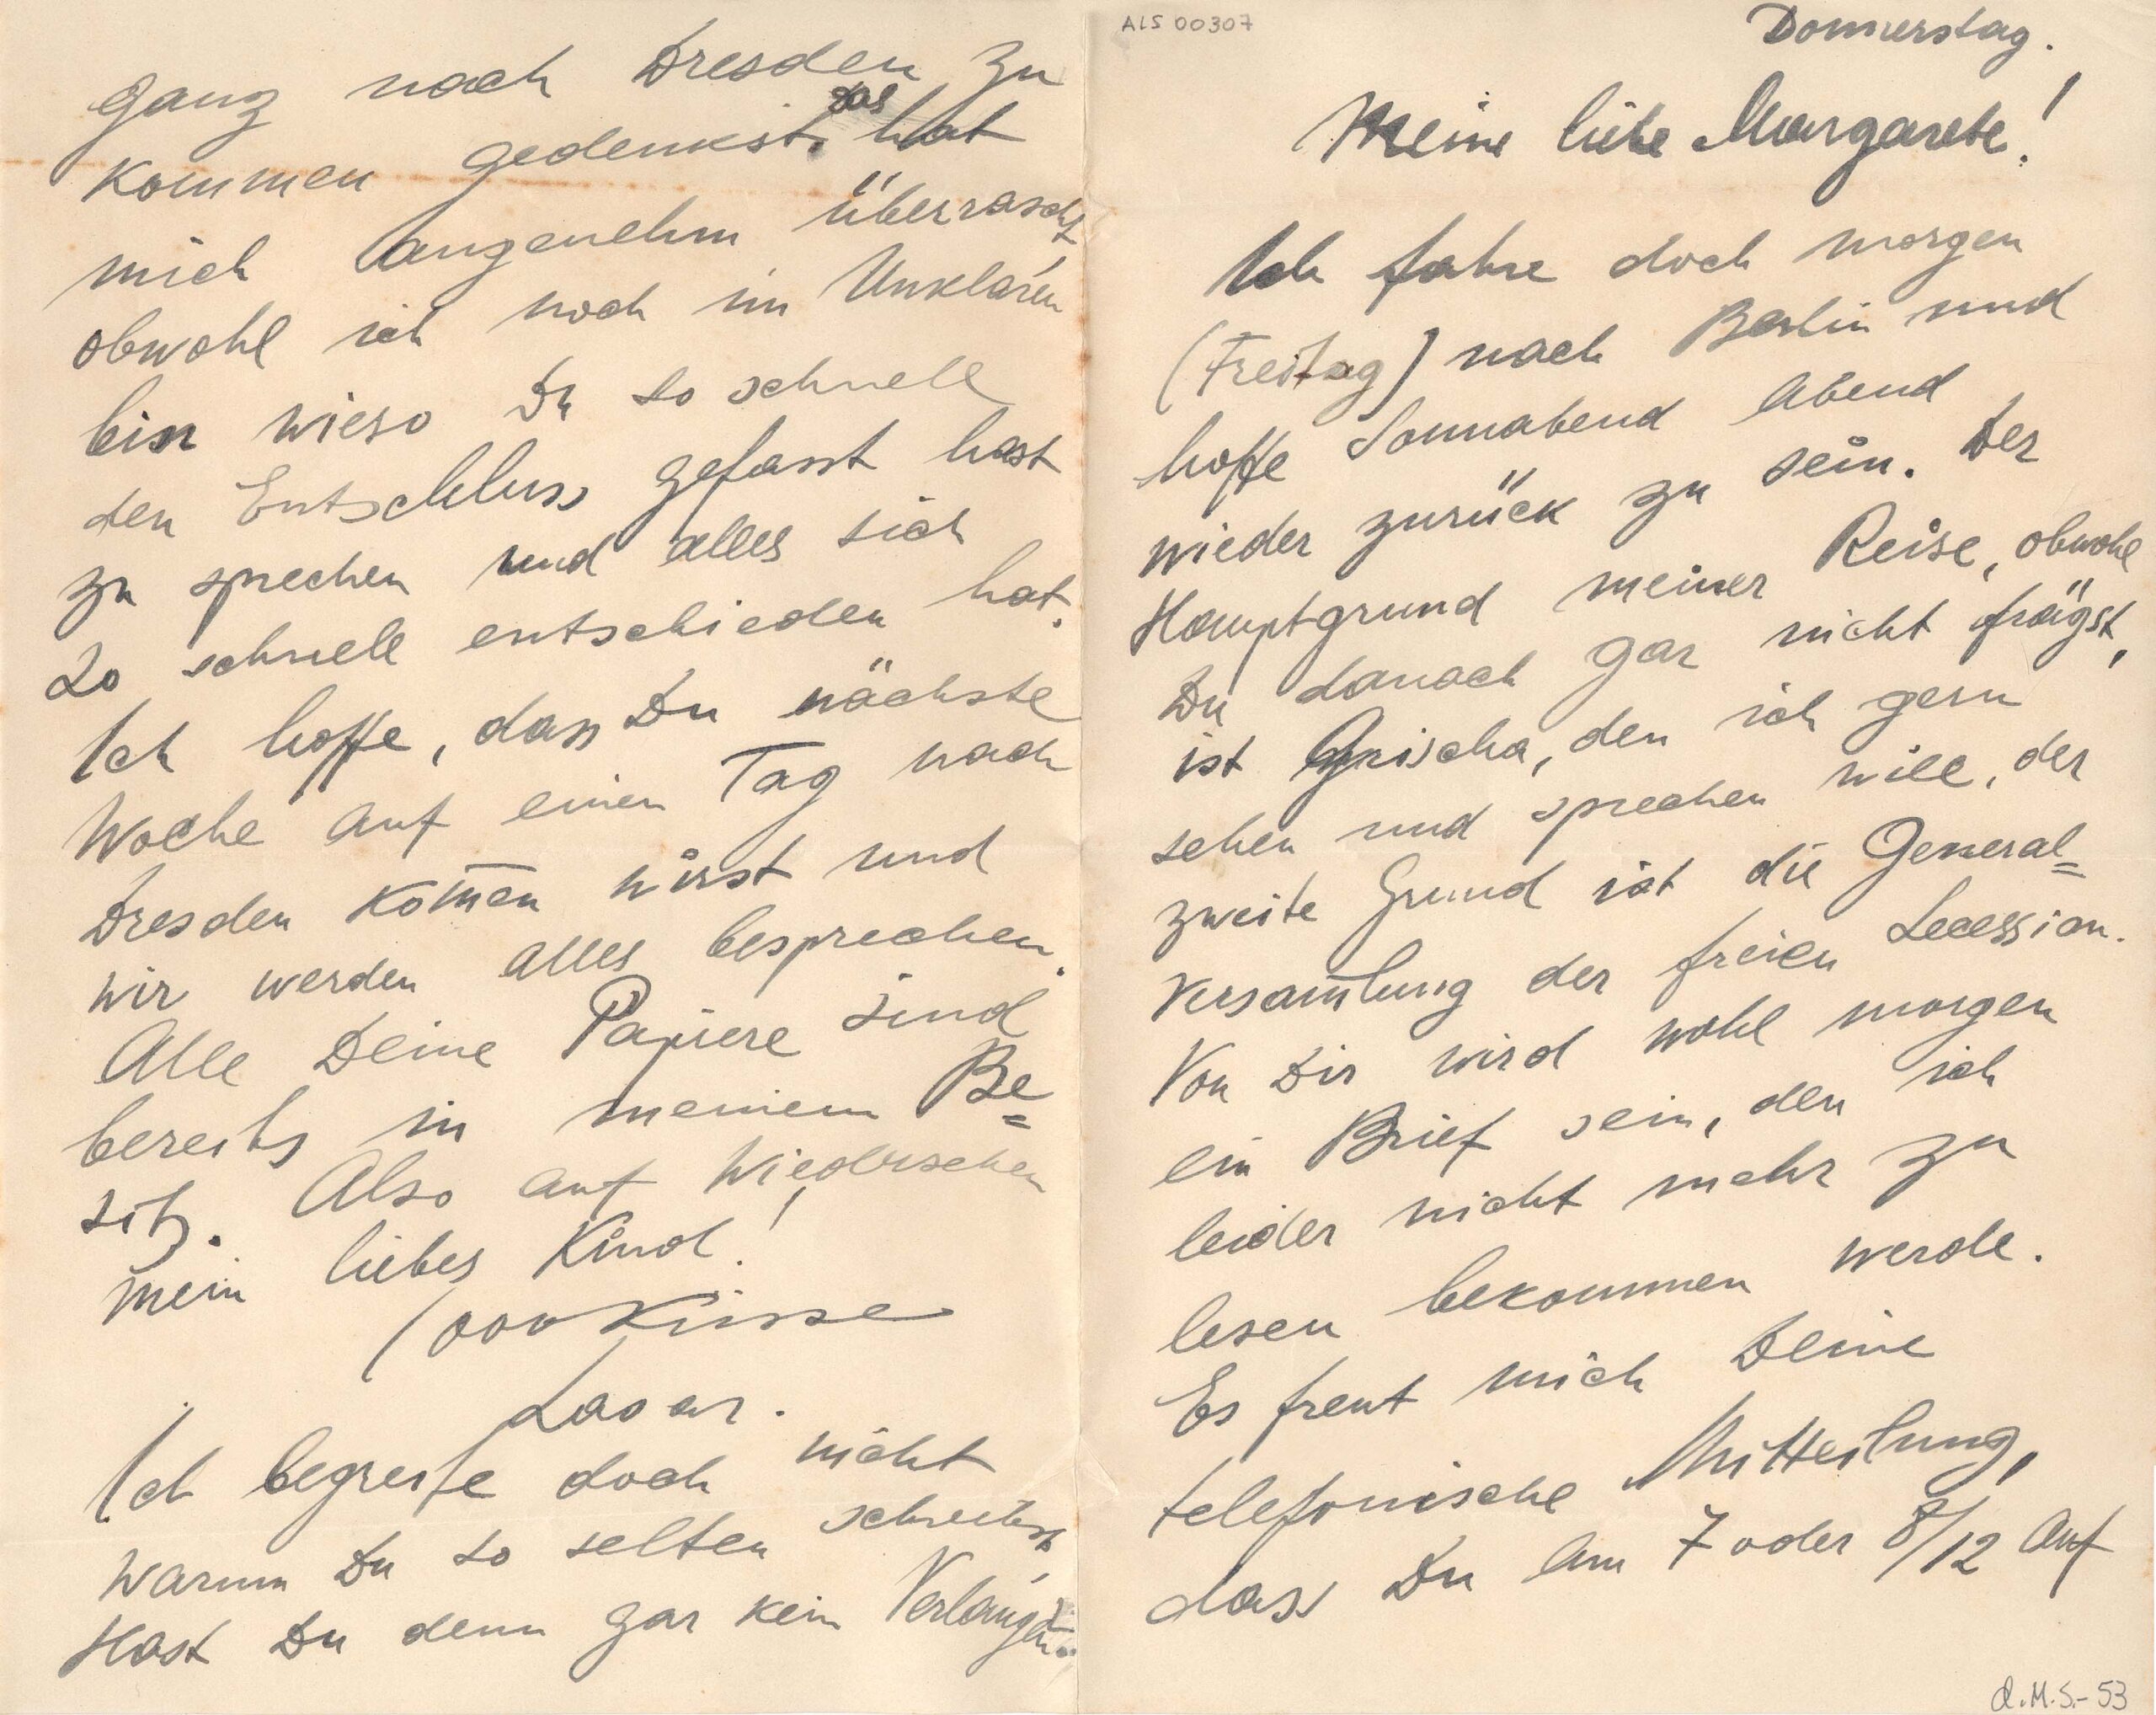 ALS 00307
Donnerstag.
Meine liebe Margarete!
Ich fahre doch morgen
(Freitag) nach Berlin und
hoffe Sonnabend Abend
wieder zurück zu sein. Der
Hauptgrund meiner Reise, obwohl
Du danach gar nicht frägst,
ist Grischa, den ich gern
sehen und sprechen will, der
zweite Grund ist die General=
Versam̄lung der freien Secession.
Von Dir wird wohl morgen
ein Brief sein, den ich
leider nicht mehr zu
lesen bekommen werde.
Es freut mich Deine
telefonische Mitteilung,
dass Du am 7 oder 8/12 auf
d.M.S.-53
ganz nach Dresden zu
kommen gedenkst. das hat
mich angenehm überrascht,
obwohl ich noch im Unklaren
bin wieso Du so schnell
den Entschluss gefasst hast
zu sprechen und alles sich
so schnell entschieden hat.
Ich hoffe, dass Du nächste
Woche auf einen Tag nach
Dresden kom̄en wirst und
wir werden alles besprechen.
Alle Deine Papiere sind
bereits in meinem Be=
sitz. Also auf Wiedersehen
mein liebes Kind!
1000 Küsse
Lasar.
Ich begreife doch nicht
warum Du so selten schreibst
Hast Du denn gar kein Verlangen